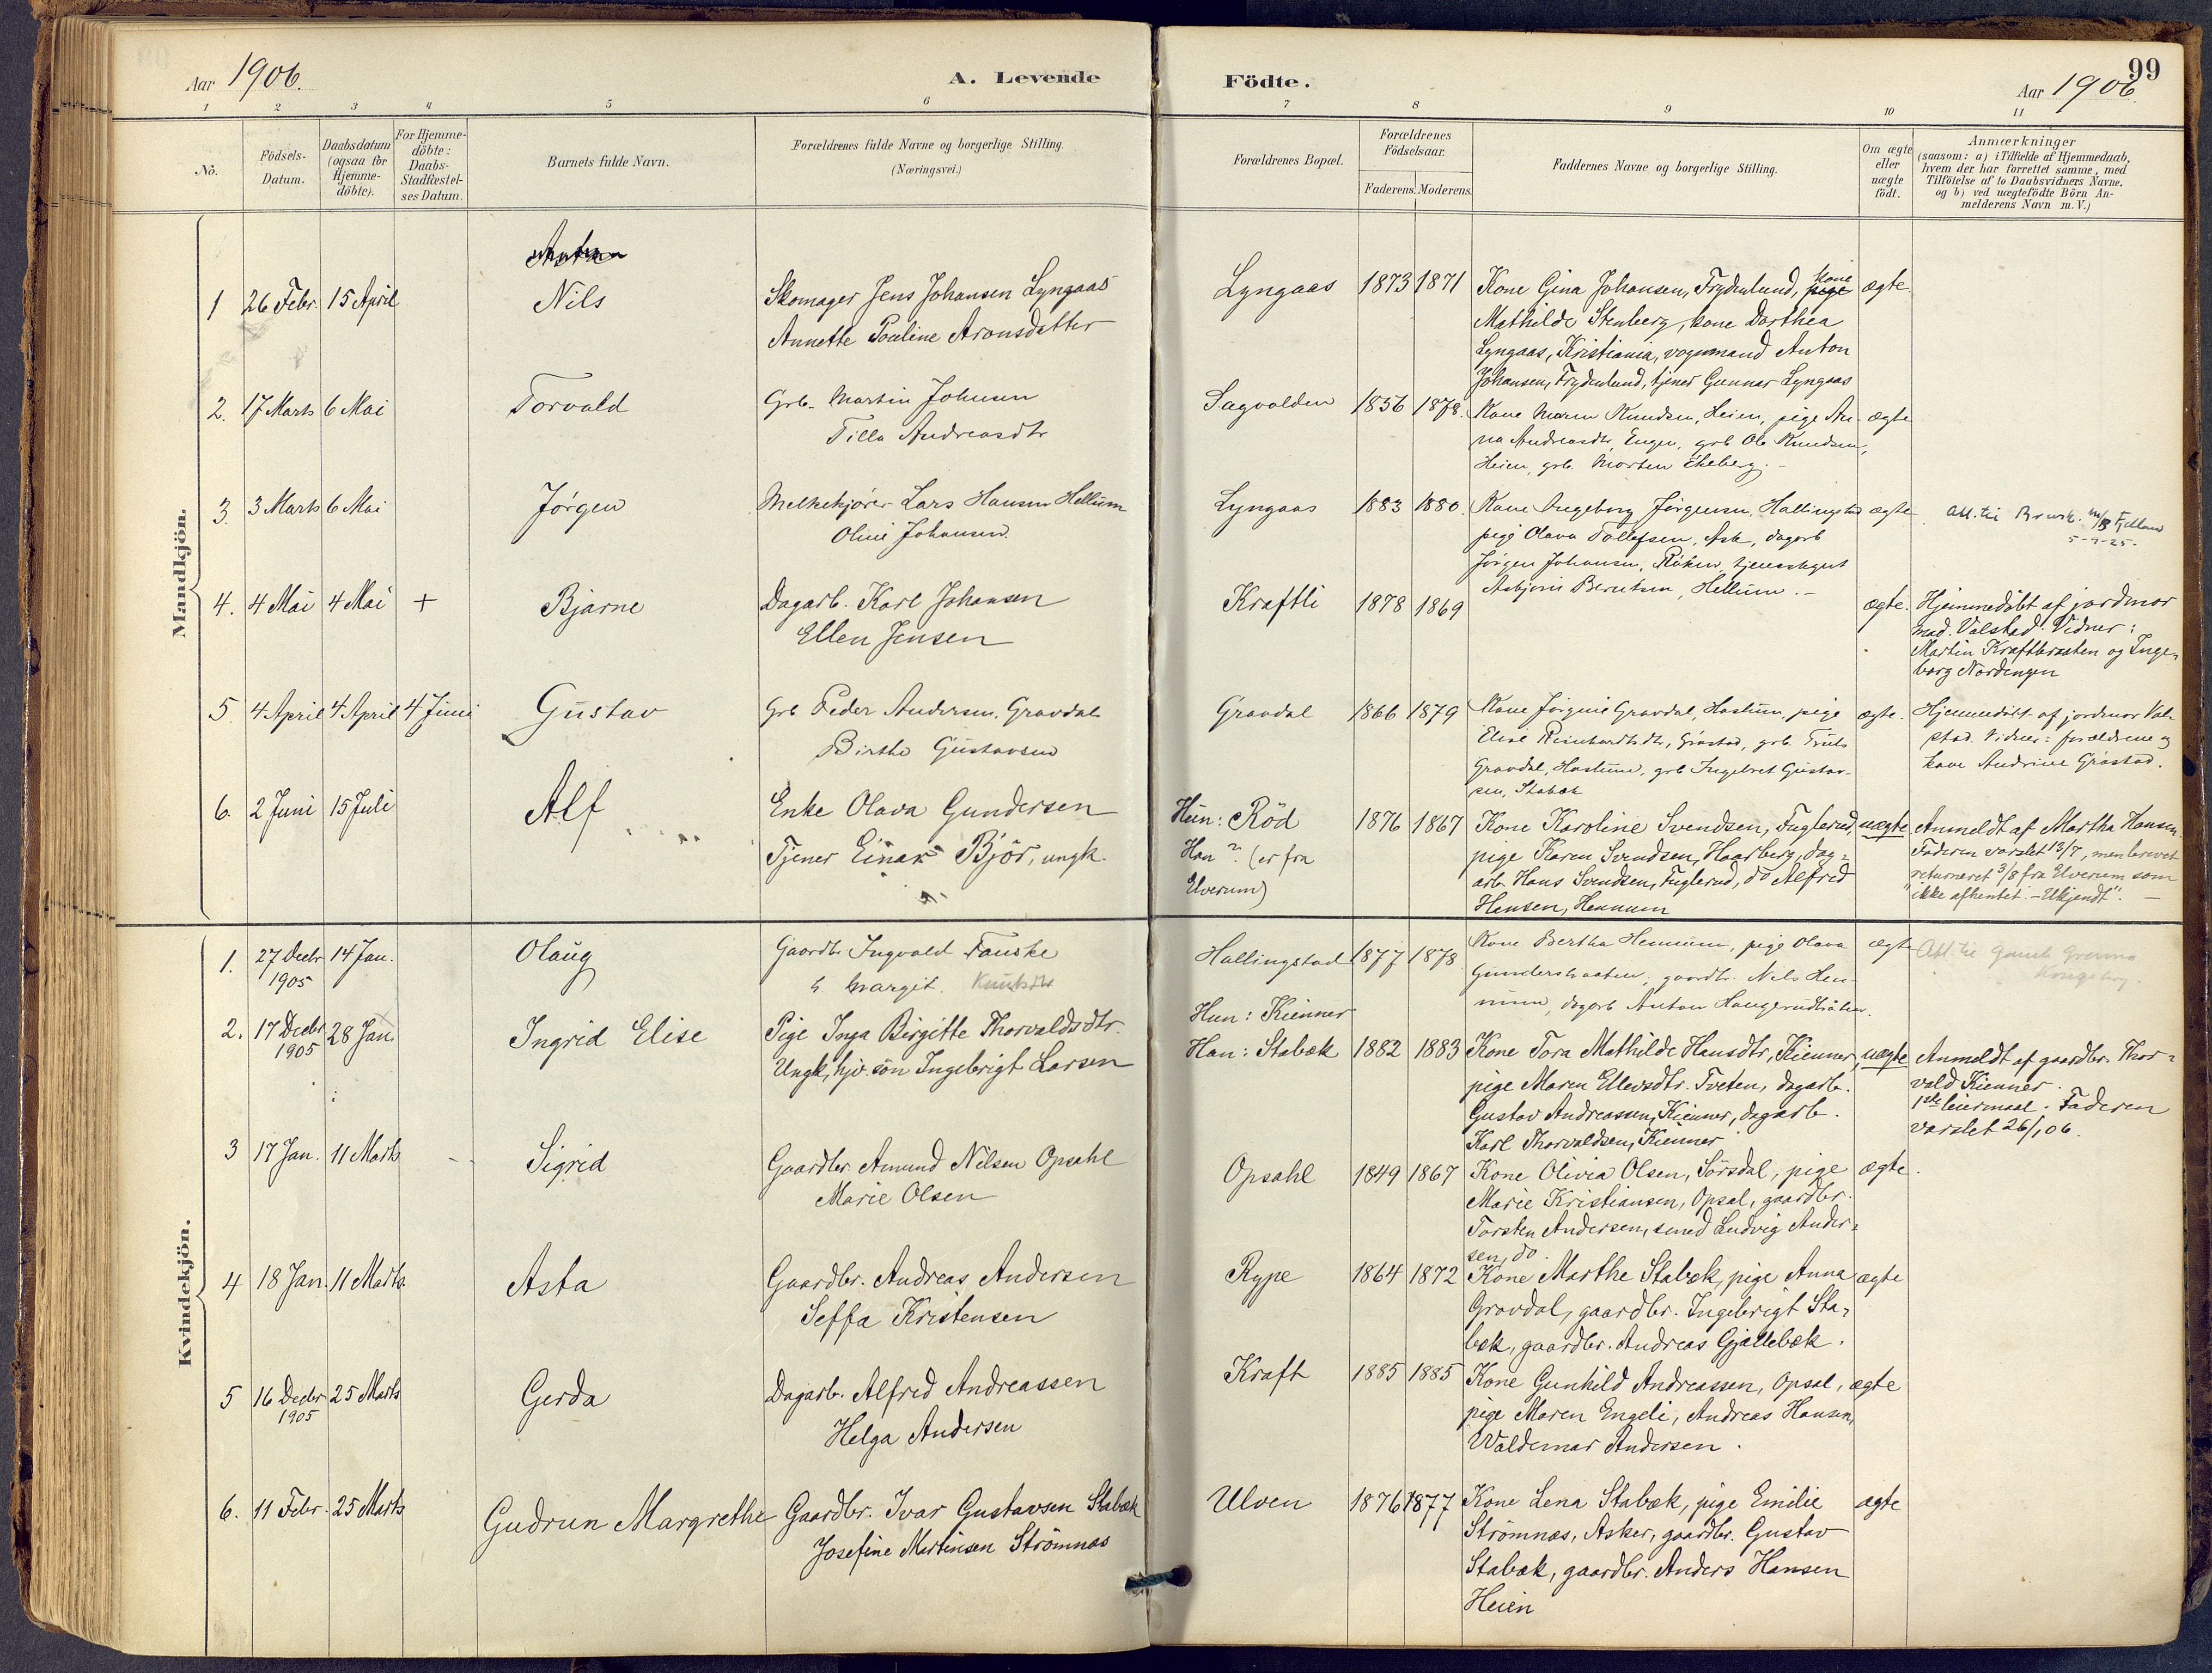 Aar 1906.
A. Levende
Födte.
Aar 1906.
99
1 2 3 4 5 6 7 8 9 10 11
No.
Födsels-Datum.
Daabsdatum (ogsaa for Hjemme-döbte).
For Hjemme-döbte: Daabs-Stadfæstel-ses Datum.
Barnets fulde Navn.
Forældrenes fulde Navne og borgerlige Stilling.
(Næringsvei.)
Forældrenes Bopæl.
Forældrenes Födselsaar.
Faderens. Moderens.
Faddernes Navne og borgerlige Stilling.
Om ægte eller uægte födt.
Anmærkninger
(saasom: a) i Tilfælde af Hjemmedaab,
hvem der har forrettet samme, med
Tilföielse af to Daabsvidners Navne.
og b) ved uægtefödte Börn An-
melderens Navn m. V.)
Mandkjön.
1 26 Febr. 15 April Nils
Skomager Jens Johansen Lyngaas
Annette Pauline Aronsdatter
Lyngaas 1873 1871
Kone Gina Johansen, Frydenlund, pige kone
Mathilde Stenberg, kone Dorthea
Lyngaas, Kristiania, vognmand Anton
Johansen, Frydenlund, tjener Gunnar Lyngaas
ægte
2. 17 Marts 6 Mai Torvald
Grb. Martin Johnsen
Tilla Andreasdtr
Sagvolden 1856 1878.
Kone Maren Knudsen, Heien, pige An-
na Andreasdtr, Engen, grb Ole Knudsen,
Heien, grb. Morten Ekeberg.
ægte
3. 3 Marts 6 Mai Jörgen
Melkekjörer Lars Hansen Hellum
Oline Johansen.
Lyngaas 1883 1880.
Kone Ingeborg Jörgensen, Hallingstad
pige Olava Tollefsen, Ask, dagarb
Jörgen Johansen, Röken, tjenestegut
Asbjörn Berntsen, Hellum.
ægte
5-9-25.
4. 4 Mai 4 Mai + Bjarne
Dagarb. Karl Johansen
Ellen Jensen
Kraftli 1878 1869
ægte.
Hjemmedöbt af jordmor
mad. Valstad. Vidner:
Martin Kraftbraaten og Inge-
borg Nordengen
5. 4 April 4 April 4 Juni Gustav
Grb Peder Andersen, Gravdal
Birthe Gustavsen
Gravdal 1866 1879
Kone Jörgine Gravdal, Haslum, pige
Elise Reinhardtsdtr, Gråstad, grb. Truls
Gravdal, Haslum, grb Ingebret Gustav-
sen, Stabæk
ægte.
Hjemmedöbt af jordmor Val-
stad. Vidner: forældrene og
kone Andrine Gråstad.
6. 2 Juni 15 Juli Alf
Enke Olava Gundersen
Tjener Einar Björ, ungk.
Hun: Röd
Han? (er fra
Elverum)
1876 1867
Kone Karoline Svendsen, Fuglerud,
pige Karen Svendsen, Haarberg, dag-
arb. Hans Svendsen, Fuglerud, do Alfred
Hansen, Hennum
uægte
Anmeldt af Martha Hansen.
Faderen varslet 13/7, men brevet
returneret 3/8 fra Elverum som
"ikke afhentet. – Ukjendt". –
Kvindekjön.
1. 27 Decbr 1905 14 Jan. Olaug
Gaardbr Ingvald Fauske
h. Margit. Knutsdtr
Hallingstad 1877 1878
Kone Bertha Hennum, pige Olava
Gunderhaaten, gaardbr. Nils Hen-
num, dagarb Anton Haugerudbråten.
ægte
2. 17 Decbr 1905 28 Jan. Ingrid Elise
Pige Inga Birgitte Thorvaldsdtr.
Ungk, hjv. sön Ingebrigt Larsen
Hun: Kienner
Han: Stabæk 1882 1883
Kone Tora Mathilde Hansdtr, Kienner,
pige Maren Ellevsdtr. Tveten, dagarb.
Gustav Andreassen, Kienner, dagarb.
Karl Thorvaldsen, Kienner
uægte
Anmeldt af gaardbr. Thor-
vald Kienner.
1ste leiermaal. Faderen
varslet 26/1 06.
3 17 Jan. 11 Marts Sigrid
Gaardbr. Amund Nilsen Opsahl
Marie Olsen
Opsahl 1849 1867
Kone Olivia Olsen, Sörsdal, pige
Marie Kristiansen, Opsal, gaardbr.
Torsten Andersen, smed Ludvig Ander-
sen, do.
ægte.
4 18 Jan. 11 Marts Asta
Gaardbr. Andreas Andersen
Seffa Kristensen
Rype 1864 1872
Kone Marthe Stabæk, pige Anna
Gravdal, gaardbr. Ingebrigt Sta-
bæk, gaardbr. Andreas Gjellebæk.
ægte
5 16 Decbr 1905 25 Marts Gerda
Dagarb. Alfred Andreassen
Helga Andersen
Kraft 1885 1885
Kone Gunhild Andreassen, Opsal,
pige Maren Engeli, Andreas Hansen,
Waldemar Andersen.
ægte
6. 11 Febr. 25 Marts Gudrun Margrethe
Gaardbr. Ivar Gustavsen Stabæk
Josefine Martinsen Strömnæs
Ulven 1876 1877
Kone Lena Stabæk, pige Emilie
Strömnæs, Asker, gaardbr. Gustav
Stabæk, gaardbr. Anders Hansen
Heien
ægte